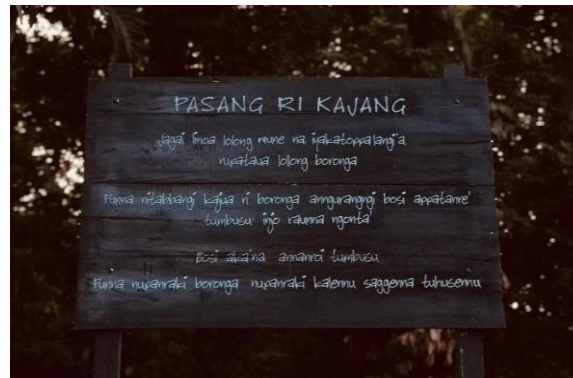 PASANG RI KAJANG
Jagai linoa lolong mune na injakatoppalangi'a
nupataua lolong boronga
Punna nitabbangi kajua ri boronga anngurangngi bosi appatanre'
tumbusu injo raunna ngonta'
Bosi aka'na annanroi tumbusu
Punna nupanraki boronga nupanraki kalennu saggenna tuhusennu